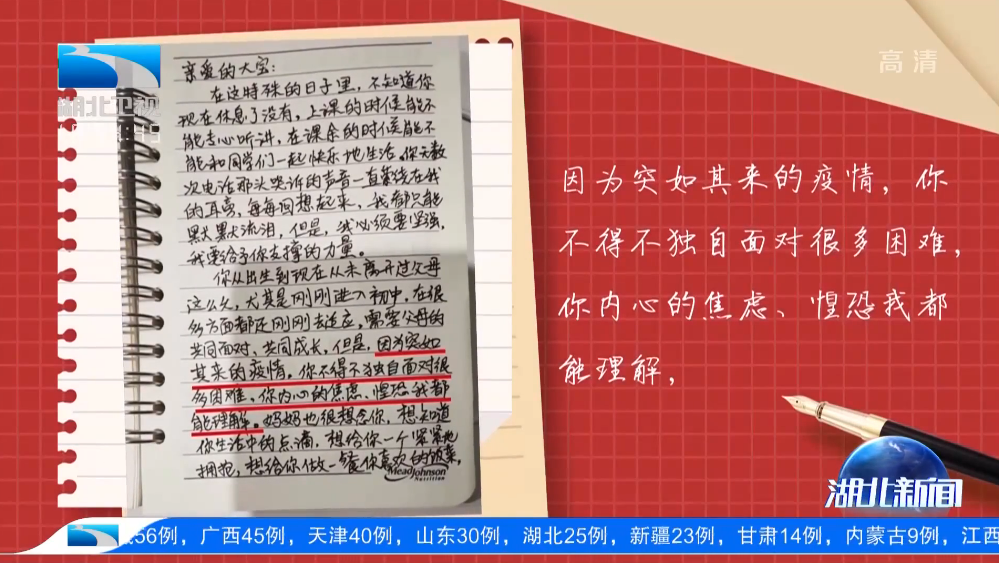 湖北卫视
高清
亲爱的大宝：
在这特殊的日子里，不知道你
现在休息了没有，上课的时候能不
能专心听讲，在课余的时候能不
能和同学们一起快乐地生活。你无数
次电话那头哭诉的声音一直萦绕在我
的耳旁，每每回想起来，我都只能
默默流泪，但是，我必须要坚强，
我要给予你支撑的力量。
你从出生到现在从未离开过父母
这么久，尤其是刚刚进入初中，在很
多方面都还刚刚去适应，需要父母的
共同面对、共同成长，但是，因为突如
其来的疫情，你不得不独自面对很
多困难，你内心的焦虑、惶恐我都
能理解。妈妈也很想念你，想知道
你生活中的点滴，想给你一个紧紧地
拥抱，想给你做一餐你喜欢的饭菜，
MeadJohnson
Nutrition
因为突如其来的疫情，你
不得不独自面对很多困难，
你内心的焦虑、惶恐我都
能理解，
湖北新闻
56例，广西45例，天津40例，山东30例，湖北25例，新疆23例，甘肃14例，内蒙古9例，江西